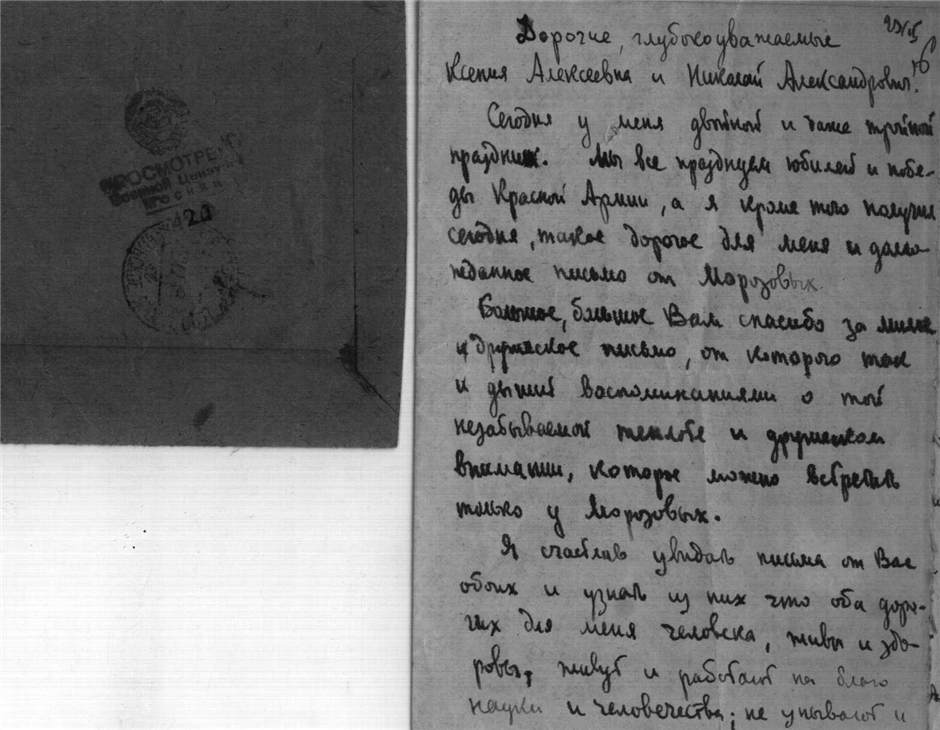 ПРОСМОТРЕНО
Военной Цензурой
421
Дорогие, глубокоуважаемые
Ксения Алексеевна и Николай Александрович!
Сегодня у меня двойной и даже тройной
праздник. Мы все празднуем юбилей и побе-
ды Красной Армии, а я кроме того получил
сегодня, такое дорогое для меня и долго-
жданное письмо от Морозовых.
Большое, большое Вам спасибо за милое
и дружеское письмо, от которого так
и дышит воспоминаниями о той
незабываемой теплоте и дружеском
внимании, которое можно встретить
только у Морозовых.
Я счастлив увидать письма от Вас
обоих и узнать из них что оба доро-
гих для меня человека, живы и здо-
ровы, живут и работают на благо
науки и человечества; не унывают и